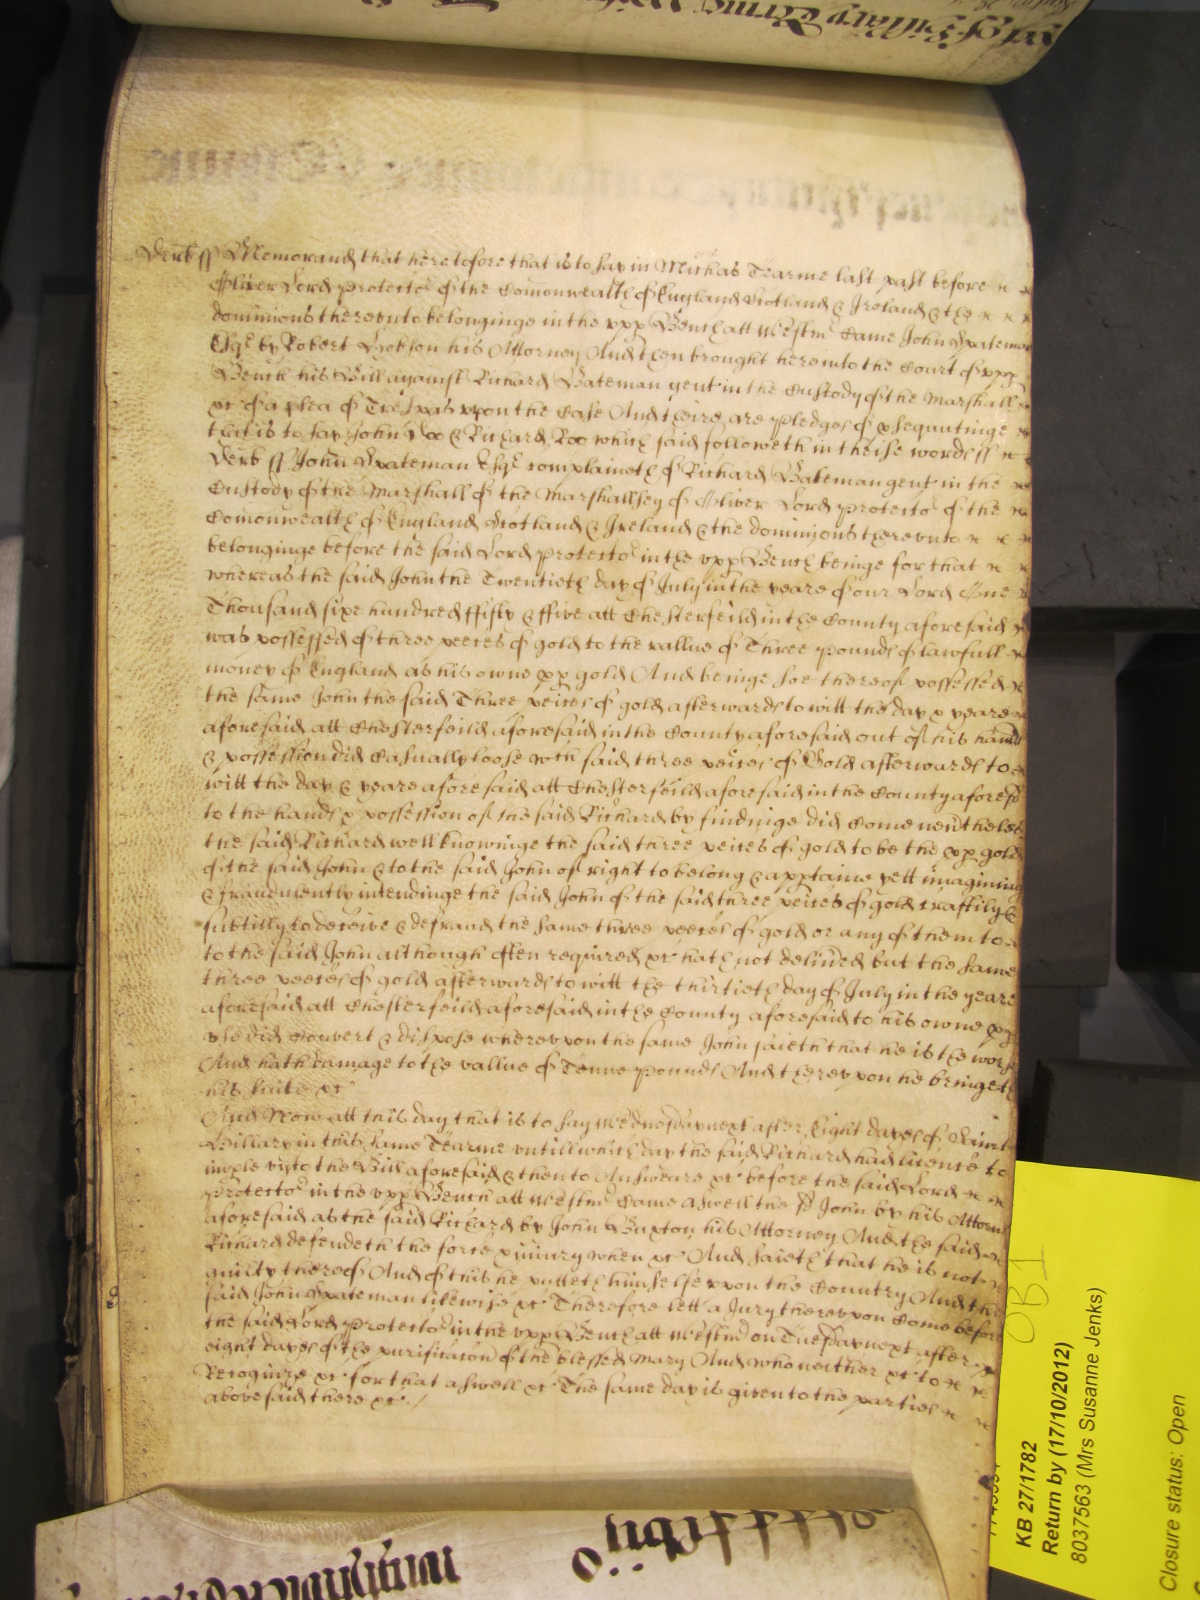 Derb ss Memorand that heretofore that is to say in Michas Tearme last past before
Oliver Lord Protector of the Comonwealth of England Scotland & Ireland & the
dominions thereunto belonginge in the upp Bench att Westm Came John Bateman
Esqr by Robert Hobson his Attorney And then brought here into the Court of upp
Bench his Bill against Richard Bateman gent in the Custody of the Marshall
&c of a plea of Trespas upon the Case And there are Pledges of psequutinge
that is to say John Doo & Richard Roo which said followeth in theise wordes ss
Derb ss John Bateman Esqr complaineth of Richard Bateman gent in the
Custody of the Marshall of the Marshallsey of Oliver Lord Protector of the
Comonwealth of England Scotland & Ireland & the dominions thereunto
belonginge before the said Lord Protector in the upp Bench beinge for that
whereas the said John the Twentieth day of July in the yeare of our Lord One
Thousand sixe hundred ffifty & ffive att Chesterfeild in the County aforesaid
was possessed of three peeces of gold to the vallue of Three Pounds of lawfull
money of England as his owne pp gold And beinge soe thereof possessed
the same John the said Three peices of gold afterwards to witt the day & yeare
aforesaid att Chesterfeild aforesaid in the County aforesaid out of his hands
& possession did Casually loose wch said three peices of Gold afterwards to
witt the day & yeare aforesaid att Chesterfeild aforesaid in the County aforesd
to the hands & possession of the said Richard by findinge did Come nevtheles
the said Richard well knowinge the said three peices of gold to be the pp gold
of the said John & to the said John of right to belong & apptaine yett imagining
& fraudulently intendinge the said John of the said three peices of gold craftily &
subtilly to deceive & defraud the same three peeces of gold or any of them to
to the said John although often required &c hath not delived but the same
three peeces of gold afterwards to witt the thirtieth day of July in the yeare
aforesaid att Chesterfeild aforesaid in the County aforesaid to his owne pp
use did Convert & dispose whereupon the same John saieth that he is the worse
And hath damage to the vallue of Tenne Pounds And thereupon he bringeth
his suite &c
And Now att this day that is to say Wednesday next after Eight dayes of Saint
Hillary in this same Tearme untill which day the said Richard had licence to
imple unto the Bill aforesaid & then to Answeare &c before the said Lord
Protector in the upp Bench att Westm Came aswell the sd John by his Attorny
aforesaid as the said Richard by John Buxton his Attorney And the said
Richard defendeth the force & iniury when &c And saieth that he is not
guilty thereof And of this he putteth himselfe upon the Country And the
said John Bateman likewise &c Therefore lett a Jury thereupon Come before
the said Lord Protector in the upp Bench att Westm on Tuesday next after
eight dayes of the purification of the blessed Mary And who neither &c to
Recognize &c for that aswell &c The same day is given to the parties
abovesaid there &c
OB1
KB 27/1782
Return by (17/10/2012)
8037563 (Mrs Susanne Jenks)
Closure status: Open